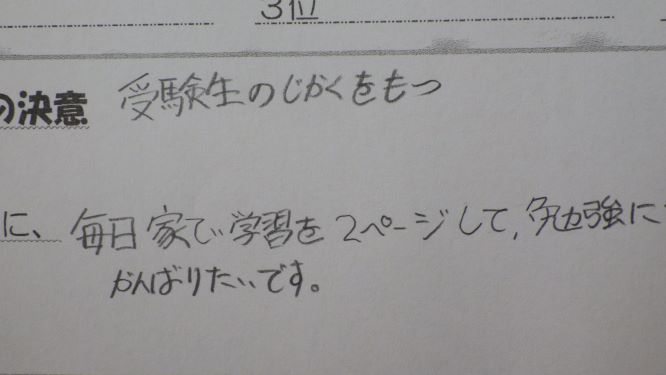 3位
の決意 受験生のじかくをもつ
に、毎日家で学習を2ページして、勉強に
がんばりたいです。